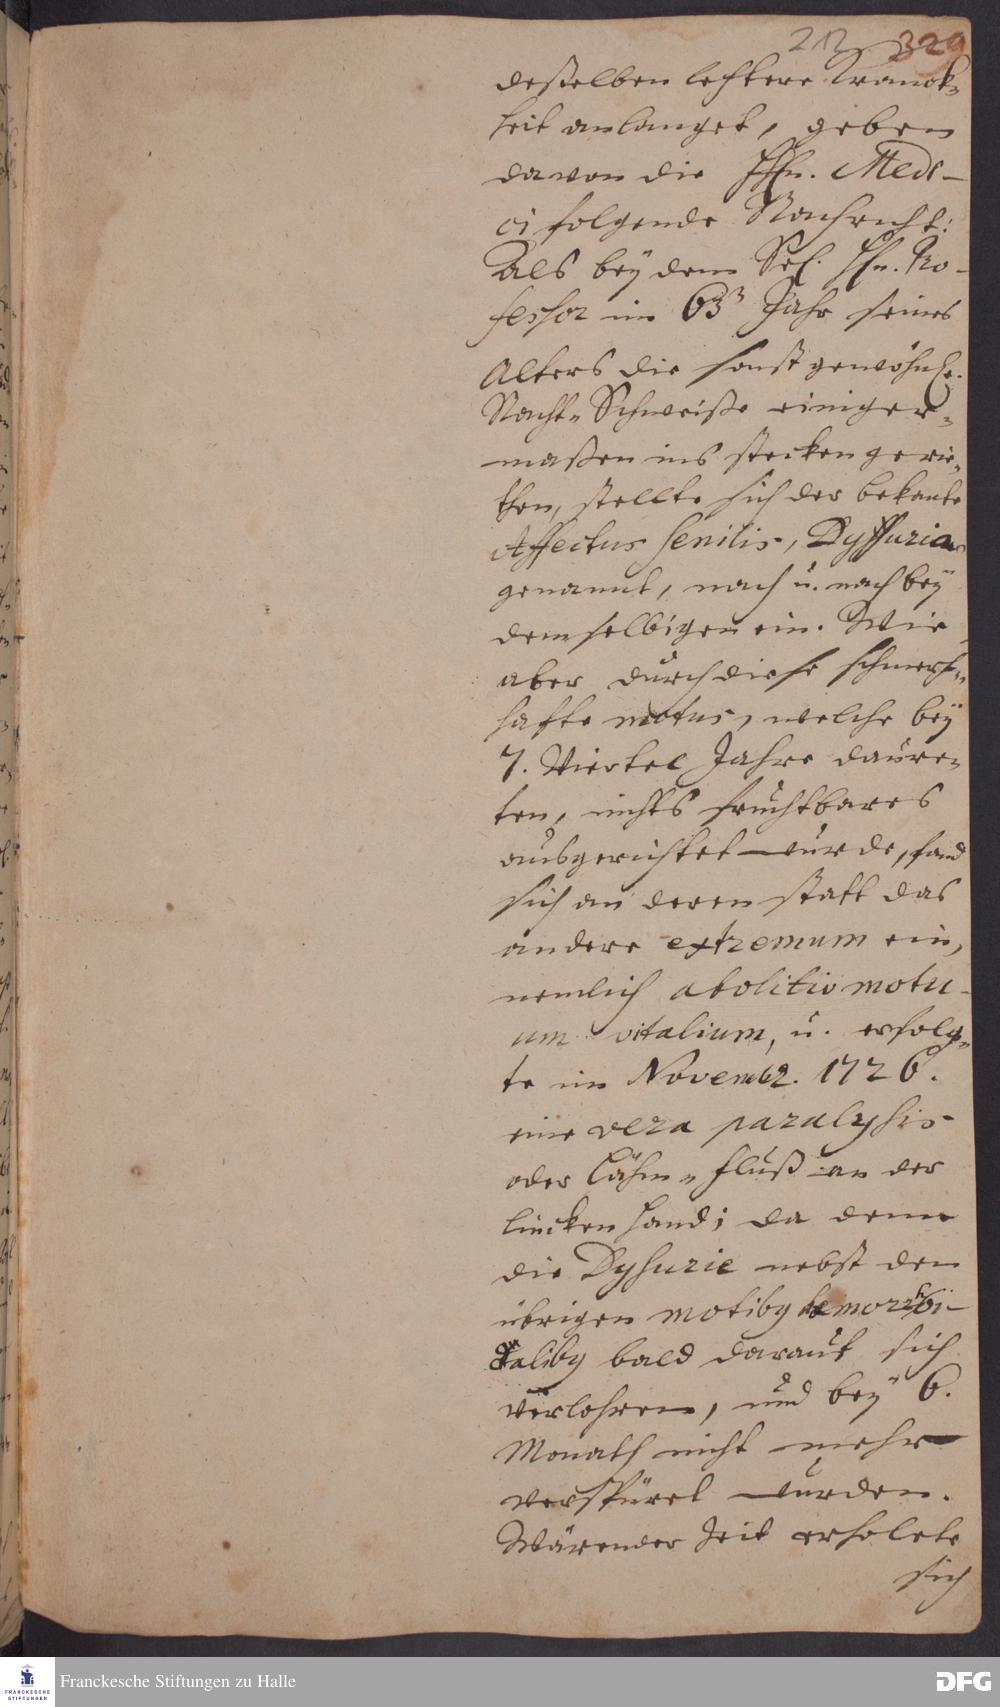 212 329
deßelben letztere Kranck-
heit anlanget, geben
davon die HHn. Medi-
ci folgende Nachricht:
Als bey dem Sel. Hn. Pro-
fessor im 63 Jahr seines
Alters die sonst gewöhnl.
Nacht-Schweiße einiger-
maßen ins stecken gerie-
then, stellte sich der bekante
Affectus senilis, Dyssuria
genannt, nach u. nach bey
demselbigen ein. Wie
aber durch diese schmertz-
hafte motus, welche bey
7. Viertel Jahre daure-
ten, nichts fruchtbares
ausgerichtet wurde, fand
sich an deren statt das
andere extremum ein,
nemlich abolitio motu-
um vitalium, u. erfolg-
te im Novembr. 1726.
eine vera paralysis
oder Lähm-Fluß an der
lincken Hand; da denn
die Dysurie nebst den
übrigen motibus hemorrhoi-
dalibus bald darauf sich
verlohren, und bey 6.
Monath nicht mehr
verspüret wurden.
Wärender Zeit erholete
sich
FRANCKESCHE STIFTUNGEN
Franckesche Stiftungen zu Halle
DFG